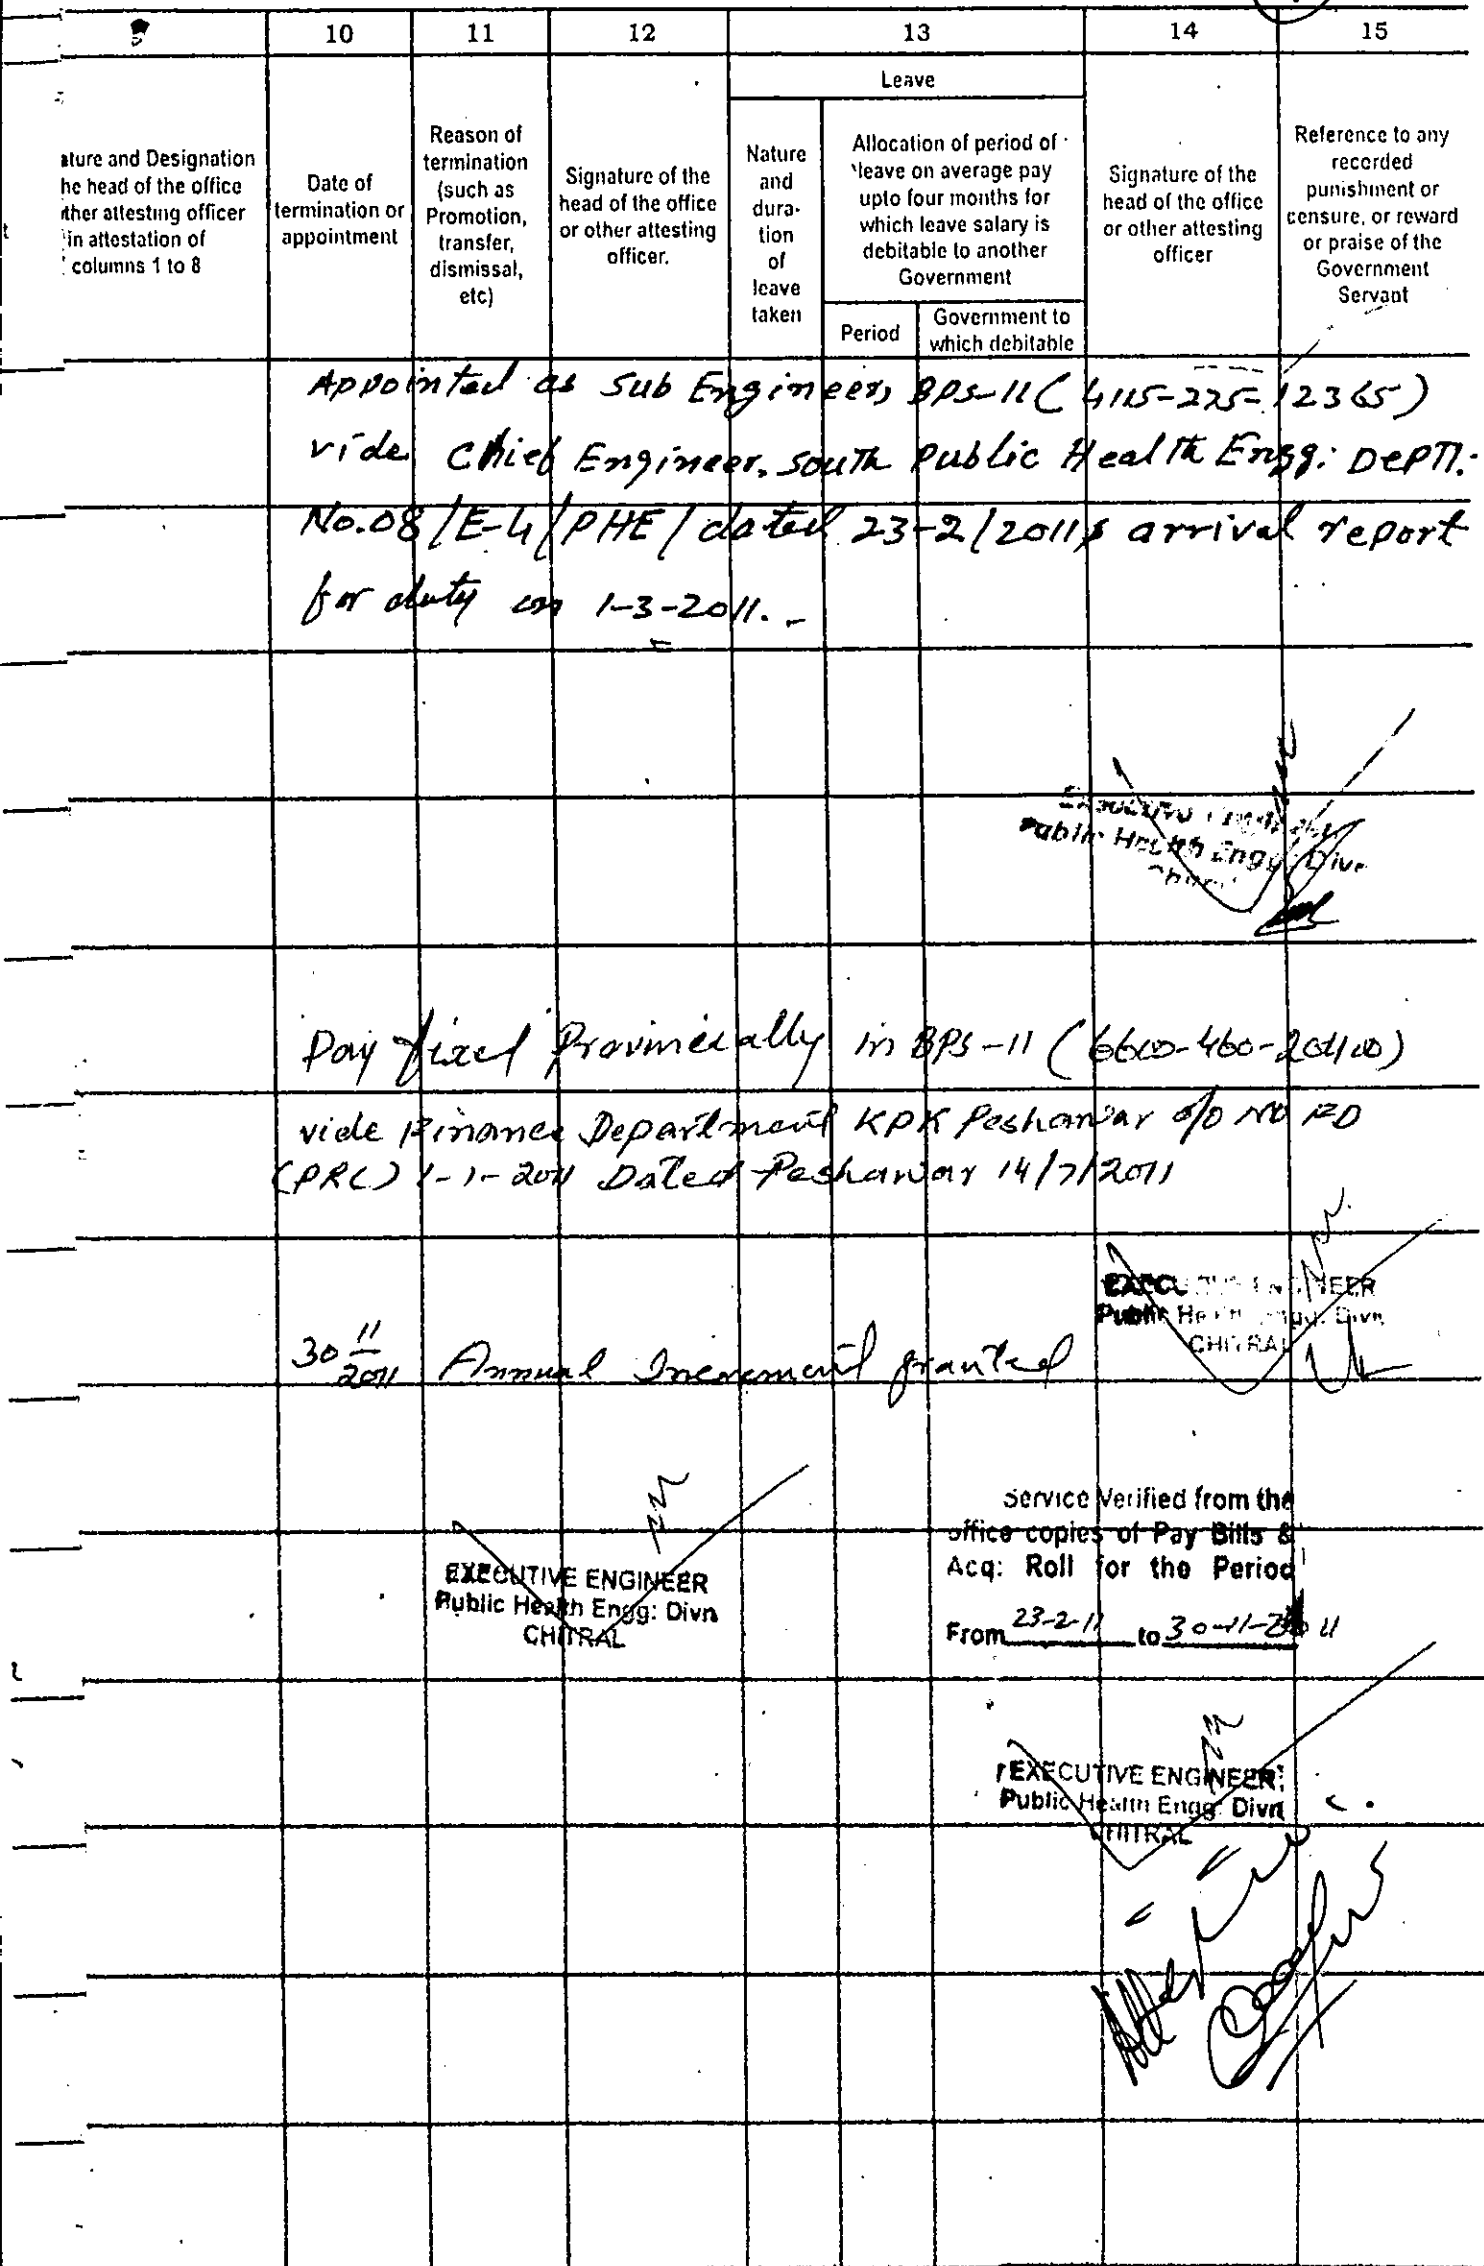 10 11 12 13 14 15
Leave
ature and Designation
he head of the office
ther attesting officer
in attestation of
columns 1 to 8
Date of
termination or
appointment
Reason of
termination
(such as
Promotion,
transfer,
dismissal,
etc)
Signature of the
head of the office
or other attesting
officer.
Nature
and
dura-
tion
of
leave
taken
Allocation of period of
leave on average pay
upto four months for
which leave salary is
debitable to another
Government
Period
Government to
which debitable
Signature of the
head of the office
or other attesting
officer
Reference to any
recorded
punishment or
censure, or reward
or praise of the
Government
Servant
Appointed as Sub Engineer, BPS-11 (4115-275-12365)
vide Chief Engineer, South Public Health Engg: Deptt:
No.08/E-4/PHE/dated 23-2/2011 & arrival report
for duty on 1-3-2011.-
Public Health Engg: Divn
Pay fixed Provincially in BPS-11 (6600-460-20400)
vide Finance Department KPK Peshawar o/o No FD
(PRC) 1-1-2011 Dated Peshawar 14/7/2011
EXECUTIVE ENGINEER
Public Health Engg: Divn
CHITRAL
30 11/2011 Annual Increment granted
EXECUTIVE ENGINEER
Public Health Engg: Divn
CHITRAL
Service Verified from the
office copies of Pay Bills &
Acq: Roll for the Period
From 23-2-11 to 30-11-2011
EXECUTIVE ENGINEER
Public Health Engg: Divn
CHITRAL